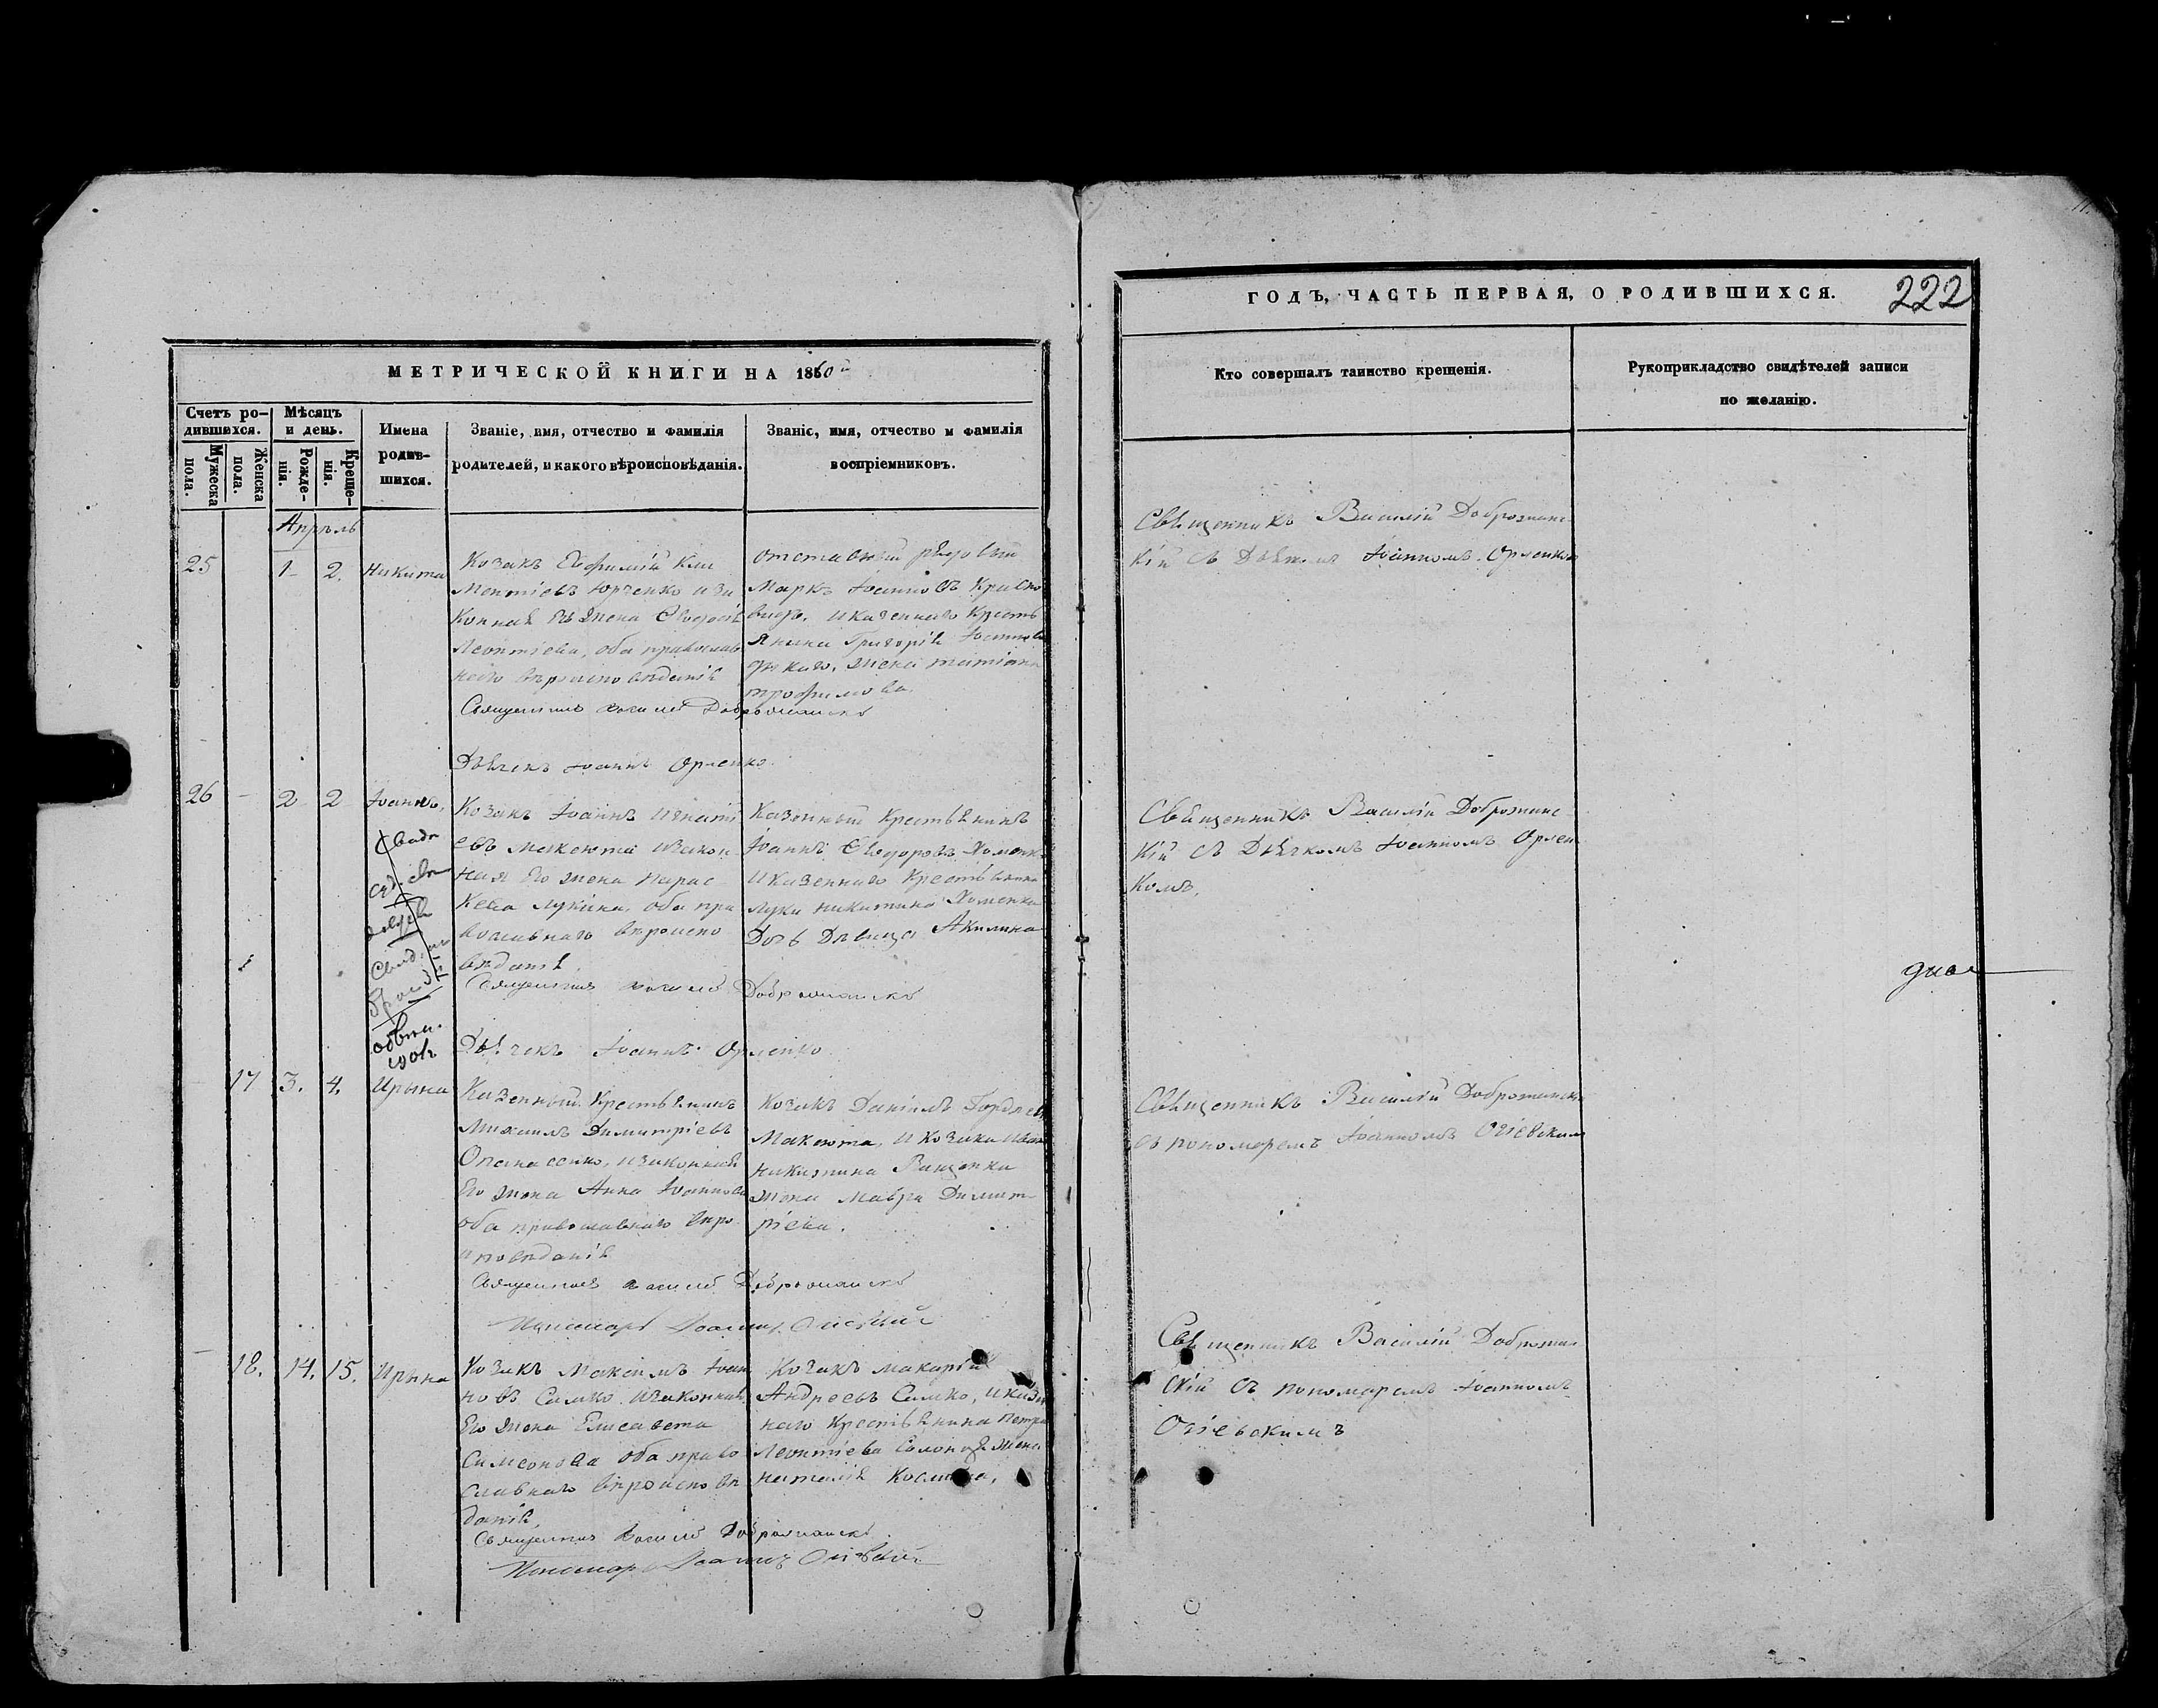 МЕТРИЧЕСКОЙ КНИГИ НА 1860й
Счетъ ро-
дившихся.
Мужеска
пола.
Женска
пола.
Мѣсяцъ
и день.
Рожде-
нія.
Креще-
нія.
Имена
родив-
шихся.
Званіе, имя, отчество и фамилія
родителей, и какого вѣроисповѣданія.
Званіе, имя, отчество и фамилія
воспріемниковъ.
Апрѣль
25
1
2.
Никита
Козакъ Ефимій Кли
ментіевъ Юрченко иза
конная его жена Ѳеодосія
Леонтіева, оба православ
наго вѣроисповѣданія
Священникъ Василій Доброжанскій
Дьячекъ Іоаннъ Орленко.
Отставной рядовый
Маркъ Іоанновъ
и казеннаго Кресть
янина Григорія
жена татіана
трофимова.
26
2
2
Іоаннъ,
Козакъ Іоаннъ Игнаті
евъ Макоюта изакон
ная Его жена Парас
Кева Лукина, оба пра
вославнаго вѣроиспо
вѣданія,
Священникъ Василій Доброжанскій
Дьячекъ Іоаннъ Орленко
Казенный Крестьянинъ
Іоаннъ Ѳеодоровъ Хоменко
и казеннаго Крестьянина
Луки Никитина Хоменка
Дочь Дѣвица Акилина
17
3.
4.
Ирына
Казенный Крестьянинъ
Михаилъ Димитріевъ
Опанасенко, изаконная
Его жена Анна Іоаннова
оба православнаго вѣро
исповѣданія
Священникъ Василій Доброжанскій
Пономарь Іоаннъ Огіевскій
Козакъ Даніилъ Гордѣевъ
Макоюта, и Козака Ивана
Никитина Ващенка
жена Мавра Димит
ріева.
18.
14.
15.
Ирына
Козакъ Максимъ Іоан
новъ Самко, изаконная
Его жена Елисавета
Симеонова оба право
славнаго вѣроисповѣ
данія,
Священникъ Василій Доброжанскій
Пономарь Іоаннъ Огіевскій
Козакъ Макарій
Андреевъ Самко, и казен
наго Крестьянина Петра
Леонтіева жена
Наталія Космина,
ГОДЪ, ЧАСТЬ ПЕРВАЯ, О РОДИВШИХСЯ.
222
Кто совершалъ таинство крещенія.
Рукоприкладство свидѣтелей записи
по желанію.
Священникъ Василій Доброжанс
кій съ Дьячкомъ Іоанномъ Орленкомъ
Священникъ Василій Доброжанс
кій съ Дьячкомъ Іоанномъ Орлен
комъ.
Священникъ Василій Доброжанскій
съ пономаремъ Іоанномъ Огіевскимъ
Священникъ Василій Доброжан
скій съ пономаремъ Іоанномъ
Огіевскимъ